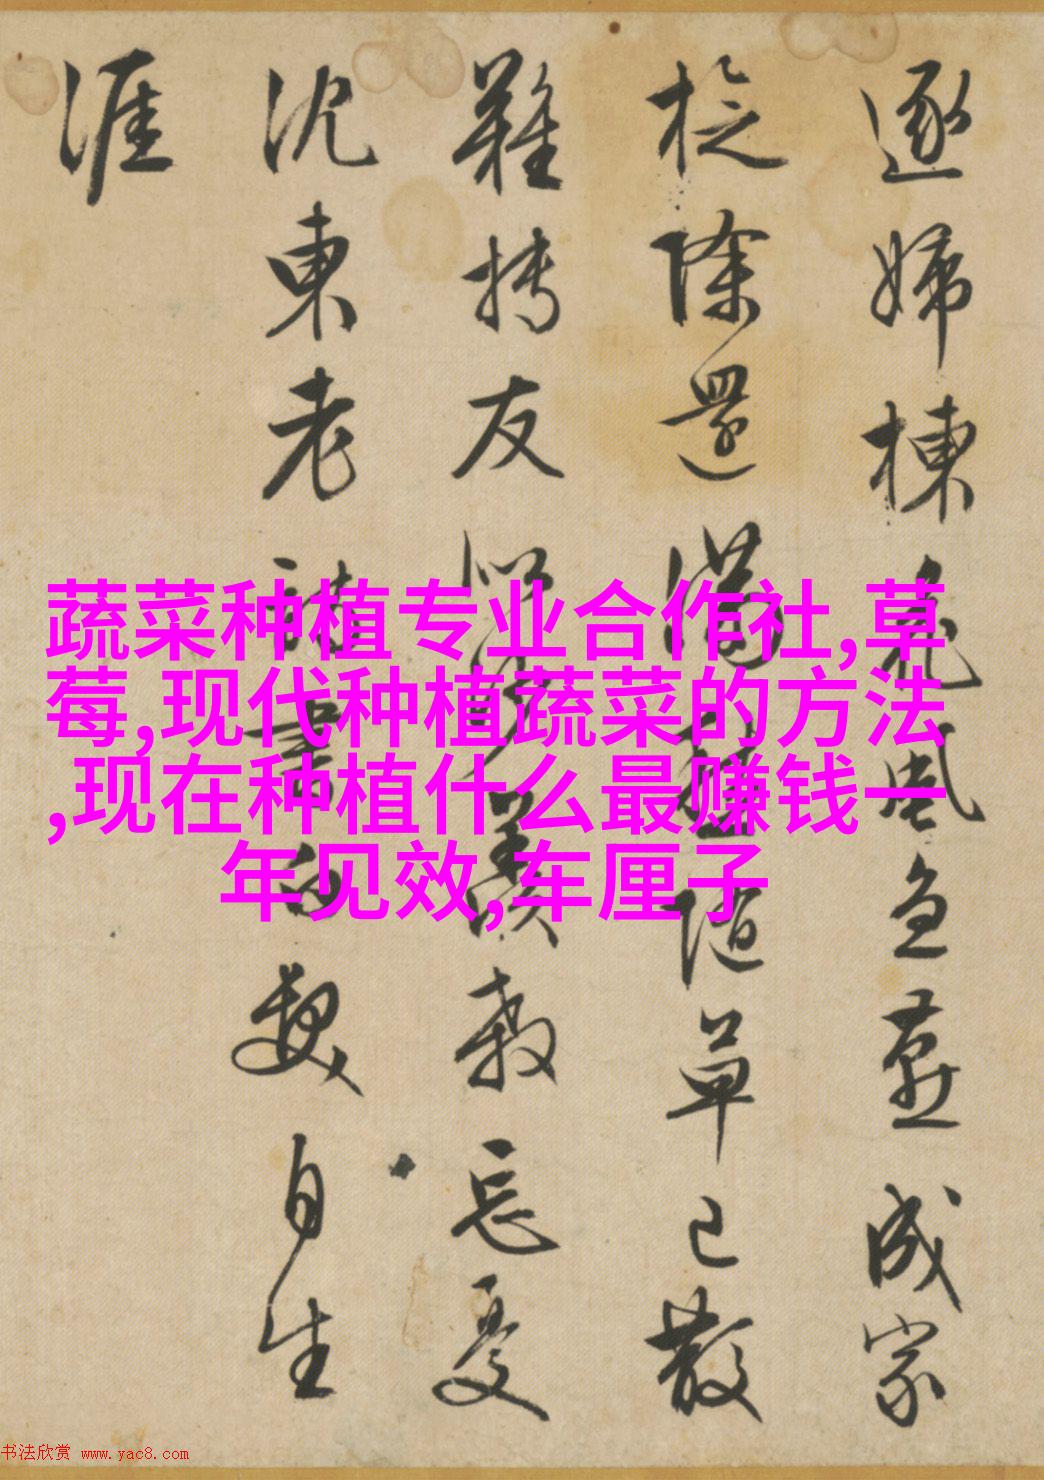 逐婦楝花風急燕成家
除還滿隨草已散
難友忘憂
沈東老詩書白髮自生
涯
蔬菜种植专业合作社,草
莓,现代种植蔬菜的方法
,现在种植什么最赚钱一
年见效,车厘子
书法欣赏 www.yac8.com